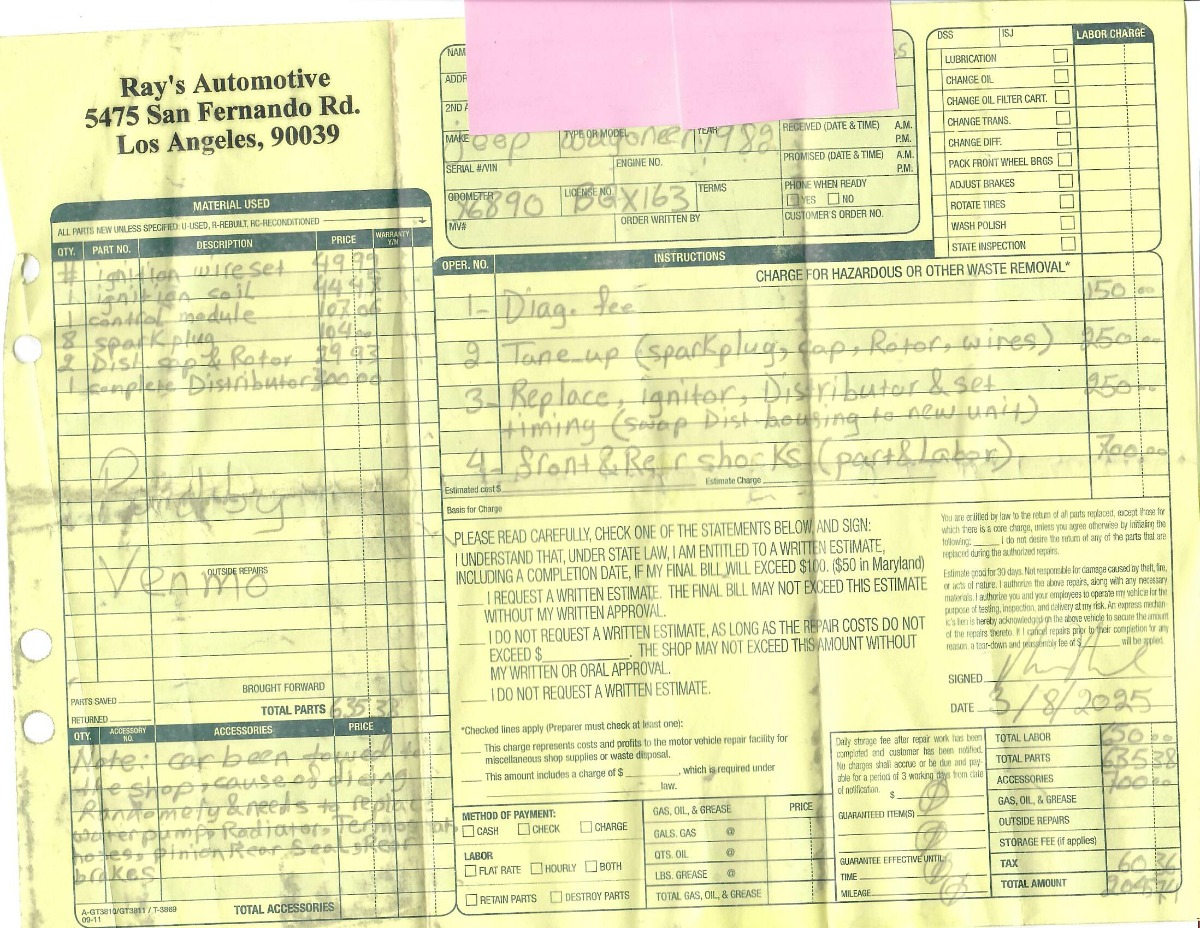 Ray's Automotive
5475 San Fernando Rd.
Los Angeles, 90039
NAM
ADDR
2ND A
MAKE Jeep TYPE OR MODEL Wagoneer YEAR 1982
RECEIVED (DATE & TIME) A.M. P.M.
SERIAL #/VIN ENGINE NO.
PROMISED (DATE & TIME) A.M. P.M.
ODOMETER 36890 LICENSE NO. BGX163 TERMS
PHONE WHEN READY
YES NO
MV# ORDER WRITTEN BY CUSTOMER'S ORDER NO.
DSS ISJ LABOR CHARGE
LUBRICATION
CHANGE OIL
CHANGE OIL FILTER CART.
CHANGE TRANS.
CHANGE DIFF.
PACK FRONT WHEEL BRGS
ADJUST BRAKES
ROTATE TIRES
WASH POLISH
STATE INSPECTION
MATERIAL USED
ALL PARTS NEW UNLESS SPECIFIED: U-USED, R-REBUILT, RC-RECONDITIONED
QTY. PART NO. DESCRIPTION PRICE WARRANTY Y/N
# ignition wire set 49 99
1 ignition coil 44 43
1 control module 107 06
8 spark plug 104 00
2 Dist cap & Rotor 29 93
1 complete Distributor 300 00
Paid by
Venmo
OUTSIDE REPAIRS
PARTS SAVED
RETURNED
BROUGHT FORWARD
TOTAL PARTS 635 38
OPER. NO. INSTRUCTIONS
CHARGE FOR HAZARDOUS OR OTHER WASTE REMOVAL*
1- Diag. fee 150 00
2- Tune-up (sparkplug, cap, Rotor, wires) 250 00
3- Replace, ignitor, Distributor & set 250 00
timing (swap Dist housing to new unit)
4- front & Rear shocks (part & Labor) 700 00
Estimated cost $ Estimate Charge
Basis for Charge
PLEASE READ CAREFULLY, CHECK ONE OF THE STATEMENTS BELOW, AND SIGN:
I UNDERSTAND THAT, UNDER STATE LAW, I AM ENTITLED TO A WRITTEN ESTIMATE,
INCLUDING A COMPLETION DATE, IF MY FINAL BILL WILL EXCEED $100. ($50 in Maryland)
I REQUEST A WRITTEN ESTIMATE. THE FINAL BILL MAY NOT EXCEED THIS ESTIMATE
WITHOUT MY WRITTEN APPROVAL.
I DO NOT REQUEST A WRITTEN ESTIMATE, AS LONG AS THE REPAIR COSTS DO NOT
EXCEED $ . THE SHOP MAY NOT EXCEED THIS AMOUNT WITHOUT
MY WRITTEN OR ORAL APPROVAL.
I DO NOT REQUEST A WRITTEN ESTIMATE.
You are entitled by law to the return of all parts replaced, except those for
which there is a core charge, unless you agree otherwise by initialing the
following: I do not desire the return of any of the parts that are
replaced during the authorized repairs.
Estimate good for 30 days. Not responsible for damage caused by theft, fire,
or acts of nature. I authorize the above repairs, along with any necessary
materials. I authorize you and your employees to operate my vehicle for the
purpose of testing, inspection, and delivery at my risk. An express mechan-
ic's lien is hereby acknowledged on the above vehicle to secure the amount
of the repairs thereto. If I cancel repairs prior to their completion for any
reason, a tear-down and reassembly fee of $ will be applied.
SIGNED
DATE 3/8/2025
QTY. ACCESSORY NO. ACCESSORIES PRICE
Note: car been towed to
the shop, cause of dieing
Randomely & needs to replac
water pump, Radiator, Termostat
hoses, pinion Rear Seal & Rear
brakes
A-GT3810/GT3811 / T-3869
09-11
TOTAL ACCESSORIES
*Checked lines apply (Preparer must check at least one):
This charge represents costs and profits to the motor vehicle repair facility for
miscellaneous shop supplies or waste disposal.
This amount includes a charge of $ , which is required under
law.
METHOD OF PAYMENT:
CASH CHECK CHARGE
LABOR
FLAT RATE HOURLY BOTH
RETAIN PARTS DESTROY PARTS
GAS, OIL, & GREASE PRICE
GALS. GAS @
QTS. OIL @
LBS. GREASE @
TOTAL GAS, OIL, & GREASE
Daily storage fee after repair work has been
completed and customer has been notified.
No charges shall accrue or be due and pay-
able for a period of 3 working days from date
of notification. $
GUARANTEED ITEM(S)
GUARANTEE EFFECTIVE UNTIL:
TIME
MILEAGE
TOTAL LABOR 650 00
TOTAL PARTS 635 38
ACCESSORIES 700 00
GAS, OIL, & GREASE
OUTSIDE REPAIRS
STORAGE FEE (if applies)
TAX 60 36
TOTAL AMOUNT 2045 74